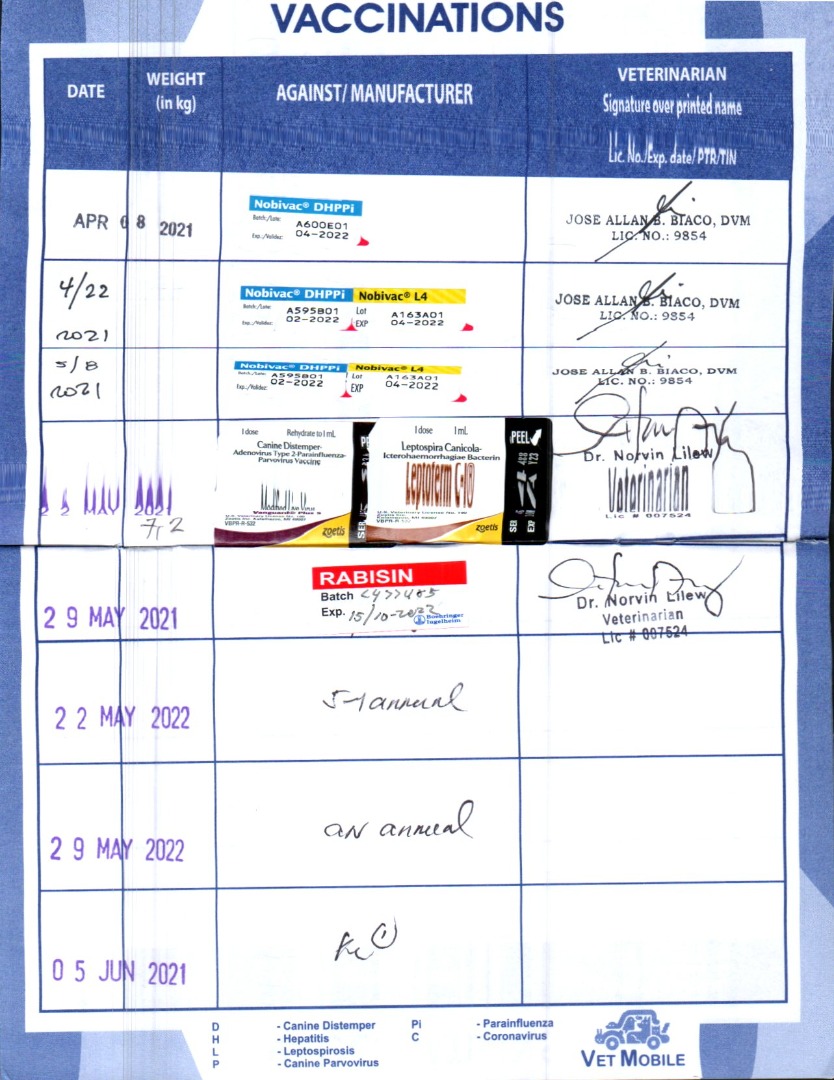 VACCINATIONS
DATE
WEIGHT
(in kg)
AGAINST/ MANUFACTURER
VETERINARIAN
Signature over printed name
Lic. No./Exp. date/ PTR/TIN
APR 08 2021
Nobivac® DHPPi
Batch./Lote:
A600E01
Exp../Validez:
04-2022
JOSE ALLAN B. BIACO, DVM
LIC. NO.: 9854
4/22
2021
Nobivac® DHPPi
Batch./Lote:
A595B01
Exp../Validez:
02-2022
Nobivac® L4
Lot
A163A01
EXP
04-2022
JOSE ALLAN B. BIACO, DVM
LIC. NO.: 9854
5/8
2021
Nobivac® DHPPi
Batch./Lote:
A595B01
Exp../Validez:
02-2022
Nobivac® L4
Lot
A163A01
EXP
04-2022
JOSE ALLAN B. BIACO, DVM
LIC. NO.: 9854
MAY 2021
7,2
1 dose Rehydrate to 1 mL
Canine Distemper-
Adenovirus Type 2-Parainfluenza-
Parvovirus Vaccine
Modified Live Virus
Vanguard® Plus 5
VBPR-R-522
zoetis
1 dose 1 mL
Leptospira Canicola-
Icterohaemorrhagiae Bacterin
Leptoferm C-I®
zoetis
PEEL
SER
EXP
Dr. Norvin Lilew
Veterinarian
Lic # 007524
29 MAY 2021
RABISIN
Batch
Exp. 15/10-2022
Boehringer
Ingelheim
Dr. Norvin Lilew
Veterinarian
Lic # 007524
22 MAY 2022
5-1 annual
29 MAY 2022
annual
05 JUN 2021
D - Canine Distemper
H - Hepatitis
L - Leptospirosis
P - Canine Parvovirus
Pi - Parainfluenza
C - Coronavirus
VET MOBILE